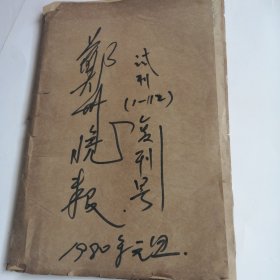 鄭州晚报
试刊
(1-112)
复刊号
1980年元旦.